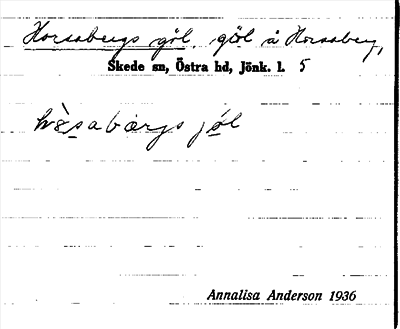 Horsabergs göl, göl å Horsaberg,
Skede sn, Östra hd, Jönk. l. 5
hòsabærgs jøl
Annalisa Anderson 1936